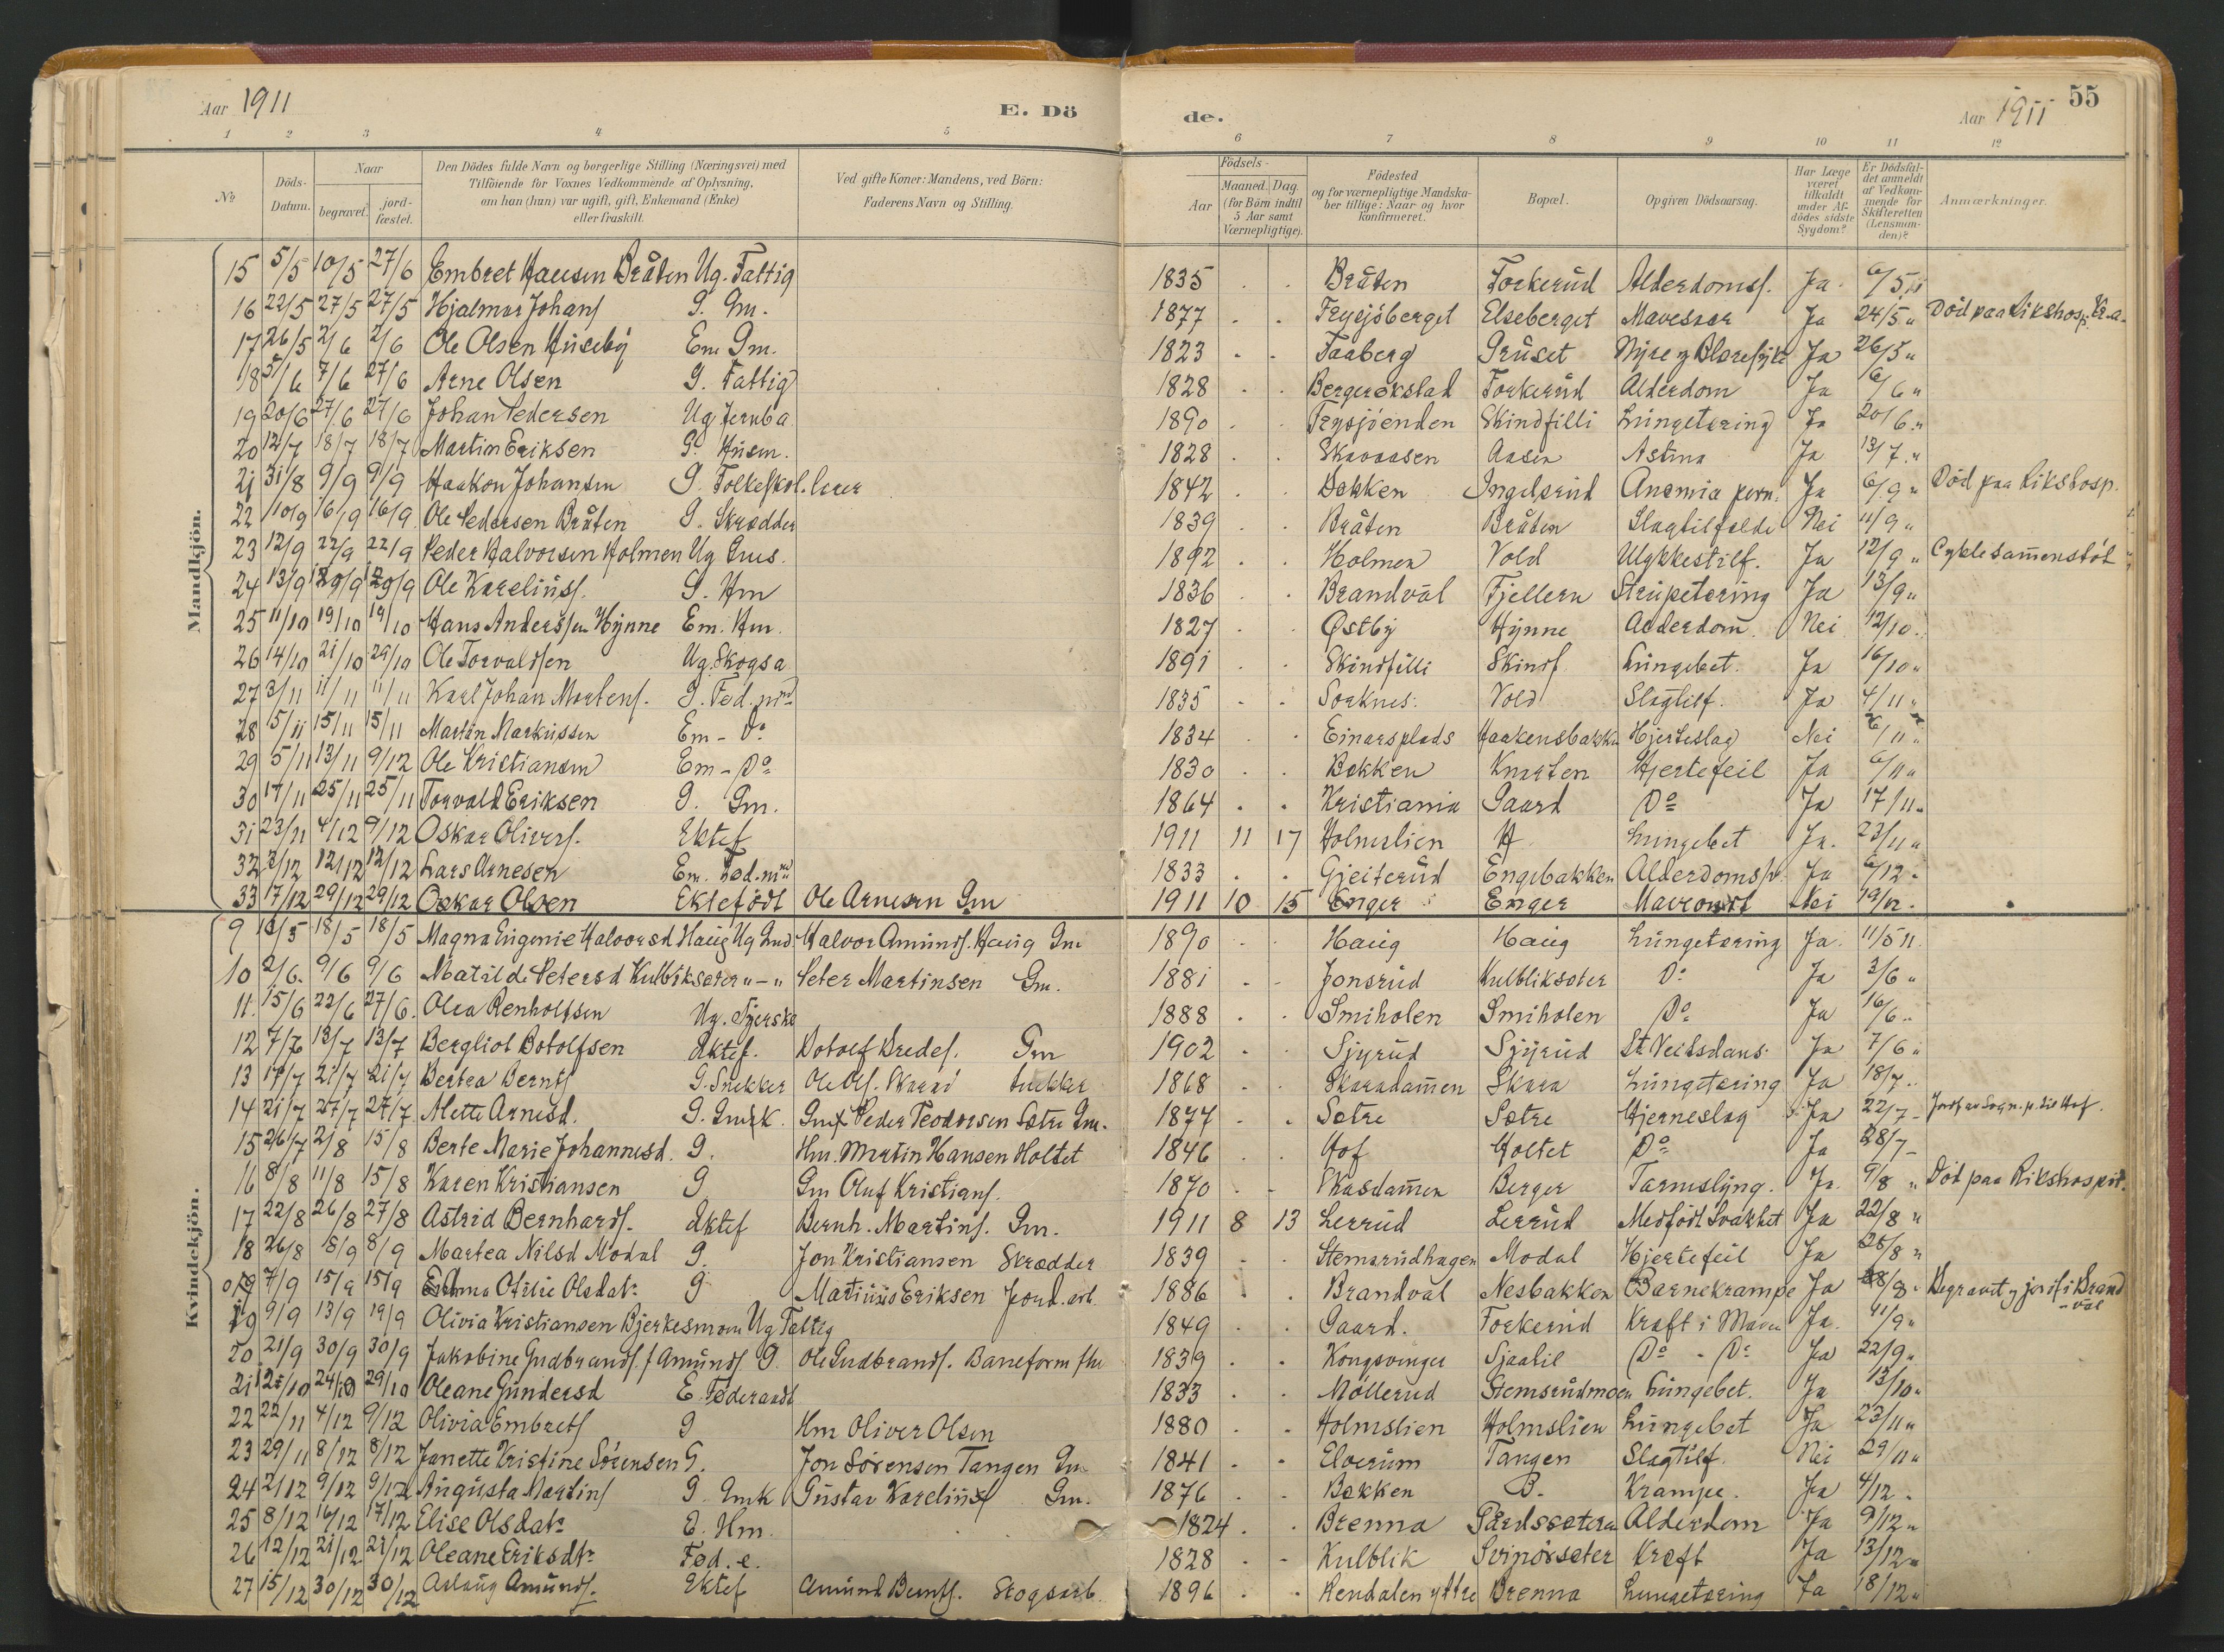 Aar 1911
E. Dö
de.
Aar 1911
55
1 2 3 4 5 6 7 8 9 10 11 12
No
Döds-Datum.
Naar
begravet.
jord-fæstet.
Den Dödes fulde Navn og borgerlige Stilling (Næringsvei) med
Tilföiende for Voxnes Vedkommende af Oplysning,
om han (hun) var ugift, gift, Enkemand (Enke)
eller fraskilt.
Ved gifte Koner: Mandens, ved Börn:
Faderens Navn og Stilling.
Födsels-
Aar
Maaned. Dag.
(for Börn indtil
5 Aar samt
Værnepligtige).
Födested
og for værnepligtige Mandska-
ber tillige: Naar og hvor
konfirmeret.
Bopæl.
Opgiven Dödsaarsag.
Har Læge
været
tilkaldt
under Af-
dödes sidste
Sygdom?
Er Dödsfal-
det anmeldt
af Vedkom-
mende for
Skifteretten
(Lensman-
den)?
Anmærkninger.
Mandkjön.
15 5/5 10/5 27/6 Embret Hansen Bråten Ug. Fattig 1835 Bråten Forkerud Alderdomsf. Ja 6/5 11
16 22/5 27/5 27/5 Hjalmar Johans G. Gm. 1877 Frysjöberget Elseberget Mavesaar Ja 24/5 " Död paa Rikshosp. Kr.a.
17 26/5 2/6 2/6 Ole Olsen Huseby Em Gm. 1823 Faaberg Gruset Nyre og Blæresyke Ja 26/5 "
18 5/6 7/6 27/6 Arne Olsen G. Fattig 1828 Bergerökstad Forkerud Alderdom Ja 6/6 "
19 20/6 27/6 27/6 Johan Pedersen Ug Jernba 1890 Frysjöenden Skindfilli Lungetæring Ja 20/6 "
20 12/7 18/7 18/7 Martin Eriksen G. Husm. 1828 Skavaasen Aasen Astma Ja 13/7 "
21 31/8 9/9 9/9 Haakon Johansen G. Folkeskol. lærer 1842 Bakken Ingelsrud Anemia pern. Ja 6/9 " Död paa Rikshosp.
22 10/9 16/9 16/9 Ole Pedersen Bråten G. Skrædder 1839 Bråten Bråten Slagtilfælde Nei 11/9 "
23 12/9 22/9 22/9 Peder Halvorsen Holmen Ug Gms. 1892 Holmen Vold Ulykkestilf. Ja 12/9 " Cyklesamenstöt
24 13/9 29/9 29/9 Ole Kareliusf. G. Hm 1836 Brandval Fjellern Strupetæring Ja 13/9 "
25 11/10 19/10 19/10 Hans Anderssen Hynne Em. Hm. 1827 Østby Hynne Alderdom. Nei 12/10 "
26 14/10 21/10 29/10 Ole Torvaldsen Ug. Skogsa 1891 Skindfilli Skindf. Lungebet. Ja 16/10 "
27 3/11 11/11 11/11 Karl Johan Mortens. G. Fød. md 1835 Sorknes. Vold Slagtilf. Ja 4/11 "
28 5/11 15/11 15/11 Martin Markussen Em - Do 1834 Einarsplads Haakensbakke Hjerteslag Nei 6/11 "
29 5/11 13/11 9/12 Ole Kristiansen Em - Do 1830 Bakken Knarten Hjertefeil Ja 6/11 "
30 17/11 25/11 25/11 Torvald Eriksen G. Gm. 1864 Kristiania Gaard Do Ja 17/11 "
31 23/11 4/12 9/12 Oskar Olivers. Ektef 1911 11 17 Holmslien H Lungebet Ja. 23/11 "
32 3/12 12/12 12/12 Lars Arnesen Em. Fød. md 1833 Gjeiterud Engebakken Alderdomsf. Ja 6/12 "
33 17/12 29/12 29/12 Oskar Olsen Ektefödt Ole Arnesen Gm 1911 10 15 Enger Enger Maveondt Nei 19/12 "
Kvindekjön.
9 18/5 18/5 Magna Eugenie Halvorsd Haug Ug Gmd Halvor Amundf. Haug Gm 1890 Haug Haug Lungetæring Ja. 11/5 11.
10 2/6 9/6 9/6 Matilde Petersd Kulbliksæter " - " Peter Martinsen Gm. 1881 Jonsrud Kulbliksæter Do Ja 3/6 "
11. 15/6 22/6 27/6 Olea Renholtsen Ug. Syerske 1888 Smiholen Smiholen Do Ja 16/6 "
12 7/7 13/7 13/7 Bergliot Botolfsen Ektef. Botolf Bredes. Gm 1902 Sjyrud Sjyrud St. Veitsdans Ja 7/6 "
13 17/7 21/7 21/7 Bertea Bernts G. Snekker Ole Ols. Skara Snekker 1868 Skaradammen Skara Lungetæring Ja 18/7 "
14 21/7 27/7 27/7 Mette Arnesd. G. Gmsk. Gm Peder Teodorsen Sætre Gm. 1877 Sætre Sætre Hjerneslag Ja 22/7 -
15 26/7 2/8 15/8 Berte Marie Johannesd. G. Hm. Martin Hansen Holtet 1846 Hof Holtet Do Ja 28/7 -
16 8/8 11/8 15/8 Karen Kristiansen G Gm Oluf Kristians. 1870 Skasdammen Berger Tarmslyng. Ja. 9/8 " Död paa Rikshospit.
17 22/8 26/8 27/8 Astrid Bernhards. Ektef Bernh. Martins. Gm. 1911 8 13 Lerrud Lerrud Medfödt Svakhet Ja 22/8 "
18 26/8 18/9 8/9 Martea Nilsd Modal G. Jon Kristiansen Skrædder 1839 Stemsrudhagen Modal Hjertefeil Ja 28/8 "
7/9 15/9 15/9 Emma Otilie Olsdatr G Marinius Eriksen Jord. arb. 1886 Brandval Nesbakken Barnekrampe Ja 28/8 " Begravet og jordf. i Brandval
19 9/9 13/9 19/9 Olivia Kristiansen Bjerkesmoen Ug Fattig 1849 Gaard. Forkerud Kræft i Maven Ja. 11/9 "
20 21/9 30/9 30/9 Jakobine Gudbrands. f Amunds G. Ole Gudbrands. Baneform 1839 Kongsvinger Sjaatil Do - Do Ja 22/9 "
21 12/10 24/10 29/10 Oleane Gundersd E. Føderaadt 1833 Möllerud Stemsrudmoen Lungebet. Ja 13/10 "
22 22/11 4/12 9/12 Olivia Embrets G Hm Oliver Olsen 1880 Holmslien Holmslien Lungebet Ja 23/11 "
23 29/11 8/12 8/12 Janette Kristine Sörensen G. Jon Sörensen Tangen Gm 1841 Elverum Tangen Slagtilf. Nei 29/11 "
24 2/12 9/12 9/12 Augusta Martins G. Gmk Gustav Karelius Gm. 1876 Bakken B. Krampe. Ja 4/12 "
25 8/12 16/12 17/12 Elise Olsdatr E. Hm. 1824 Brenna Pardssæteren Alderdom Ja 9/12 "
26 12/12 21/12 21/12 Oleane Eriksdtr Fød. e. 1828 Kulblik Svipörsæter Kræft Ja 13/12 "
27 15/12 30/12 30/12 Aslaug Amunds. Ektef Amund Bernts. Skogsarb. 1896 Rendalen yttre Brenna Lungetæring Ja 18/12 "